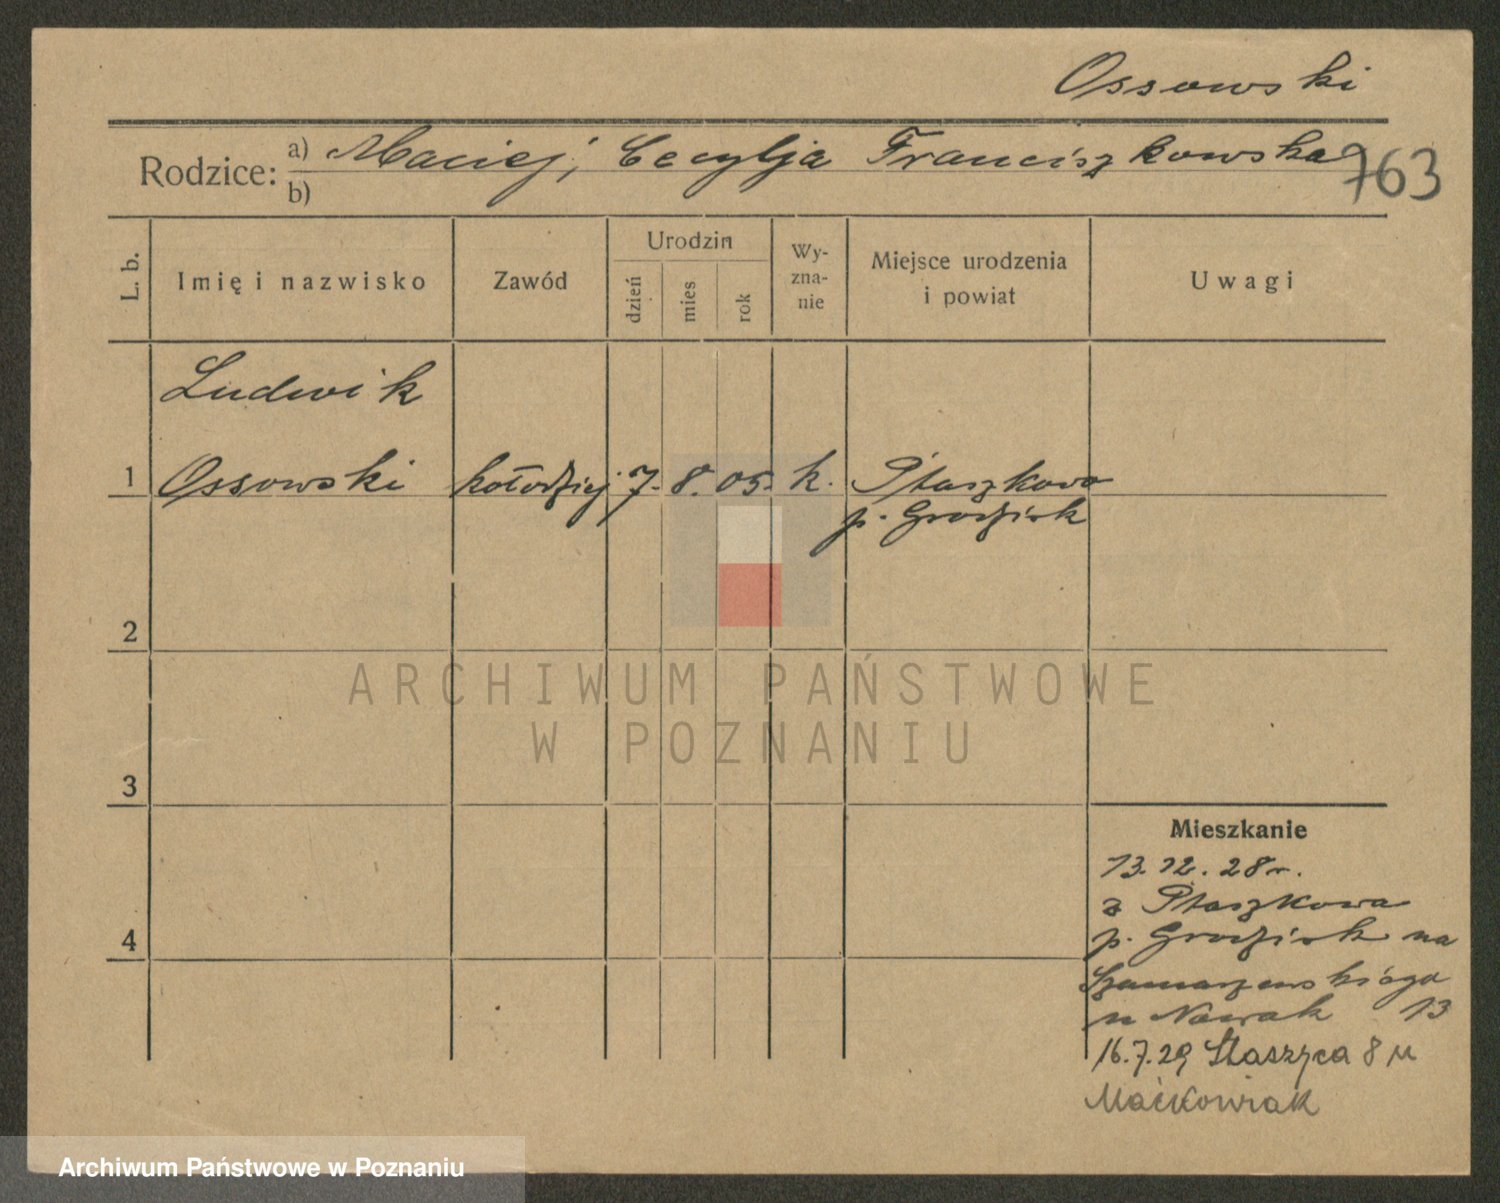 Ossowski
Rodzice: a) Maciej, Cecylja Franciszkowska
b)
763
L. b.
Imię i nazwisko
Zawód
Urodzin
dzień
mies
rok
Wy-
zna-
nie
Miejsce urodzenia
i powiat
Uwagi
Ludwik
1 Ossowski kołodziej 7. 8. 05. k. Ptaszkowo
p. Grodzisk
2
3
4
Mieszkanie
13.12.28 r.
z Ptaszkowa
p. Grodzisk na
Szamarzewskiego
u Nowak 13
16.7.29 Staszyca 8 u
Maćkowiak
ARCHIWUM PAŃSTWOWE
W POZNANIU
Archiwum Państwowe w Poznaniu